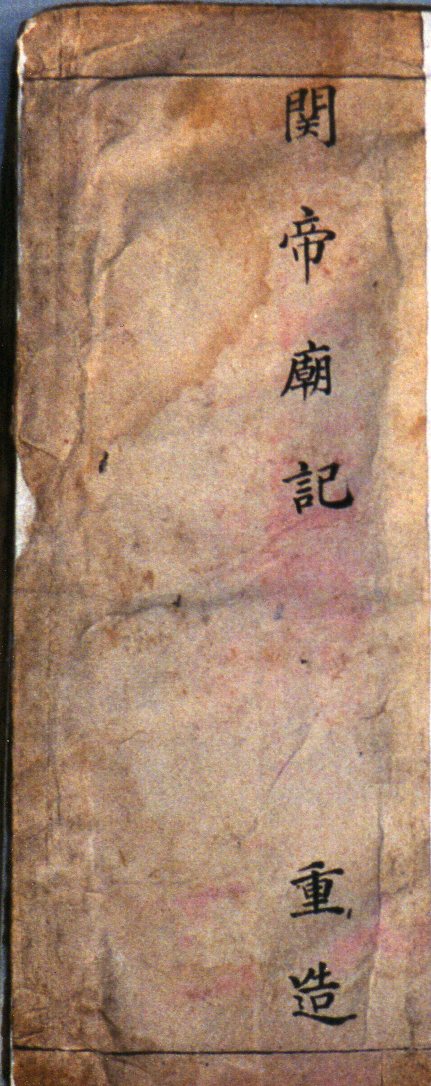 関帝廟記 重造